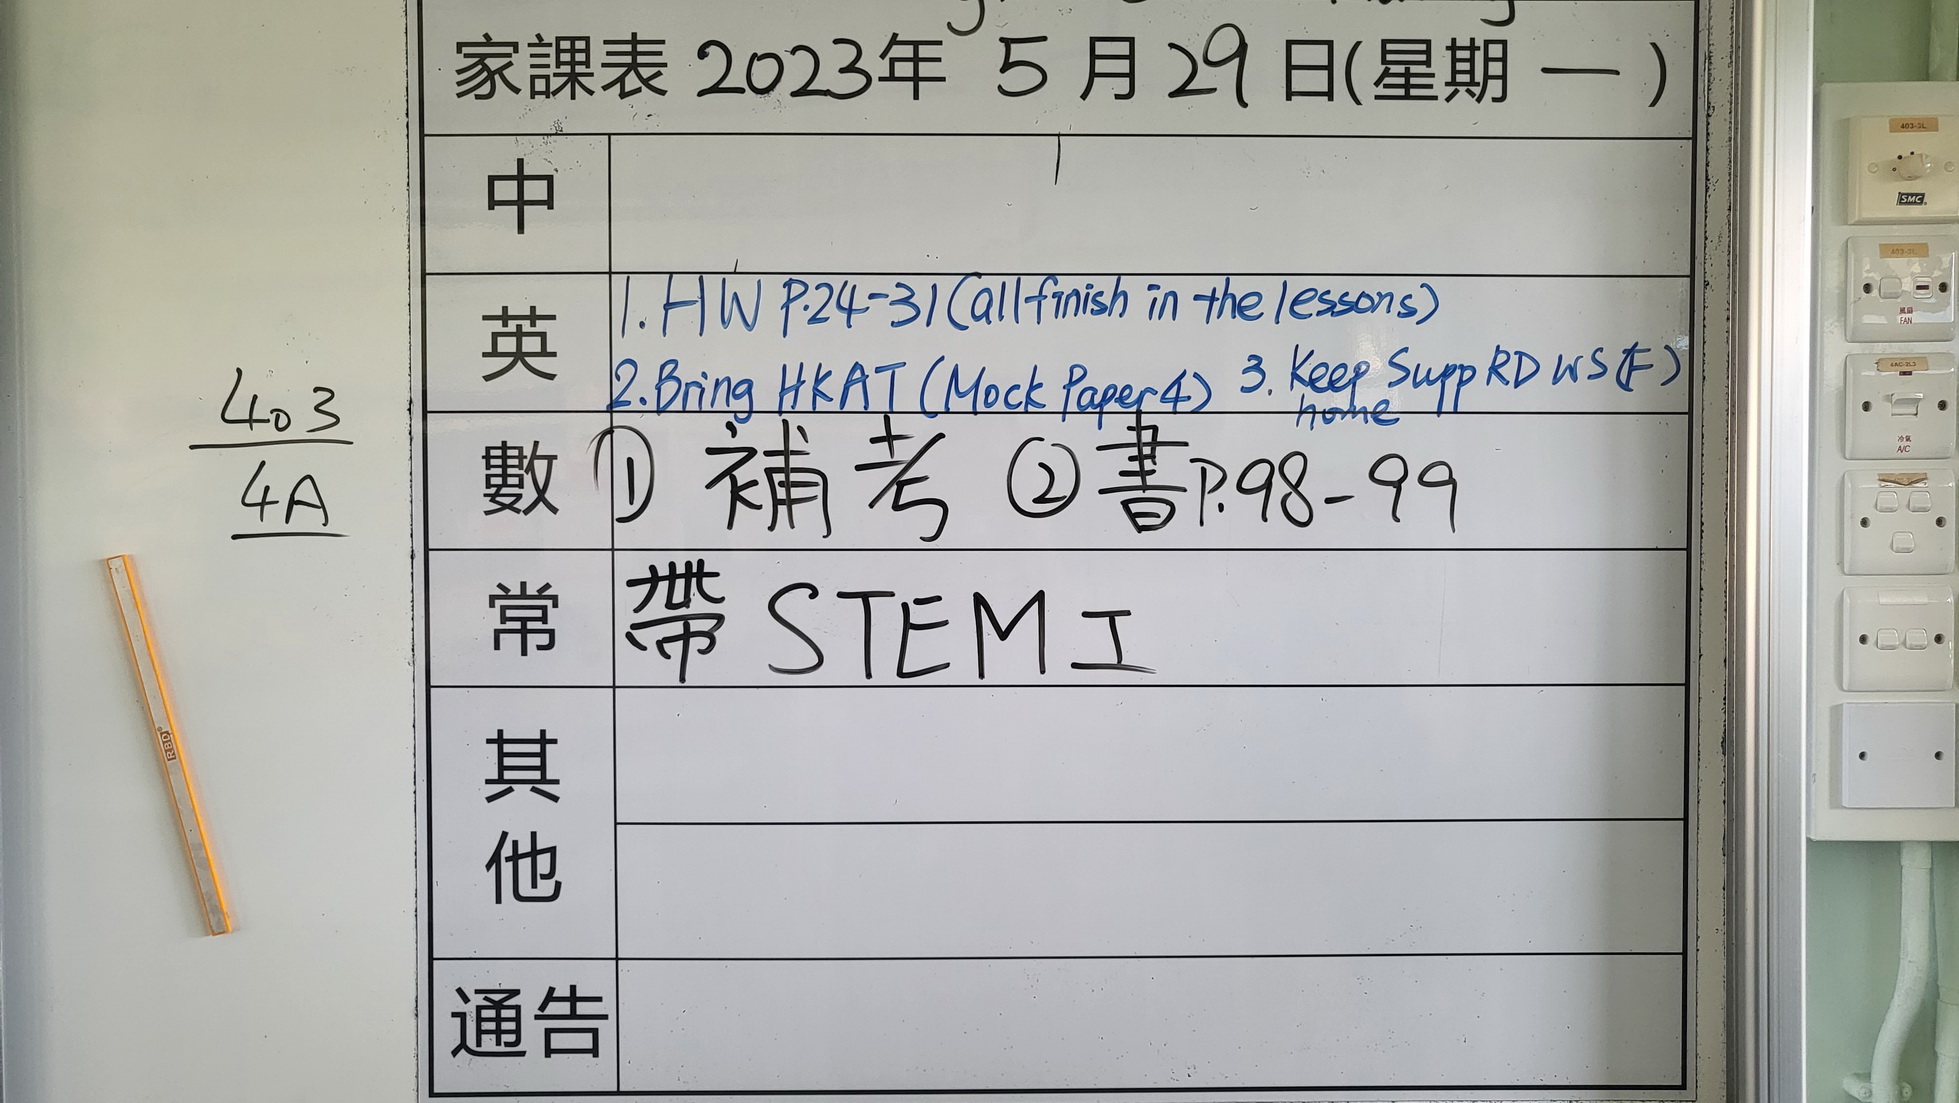 家課表 2023年 5月29日(星期一)
中
英
1. HW P.24-31 (all finish in the lessons)
2. Bring HKAT (Mock Paper 4) 3. Keep Supp RD WS
home
數 ① 補考 ② 書P.98-99
常 帶 STEM 工
其他
通告
403
4A
RBD
403-2L
SMC
403-3L
風扇
FAN
冷氣
A/C